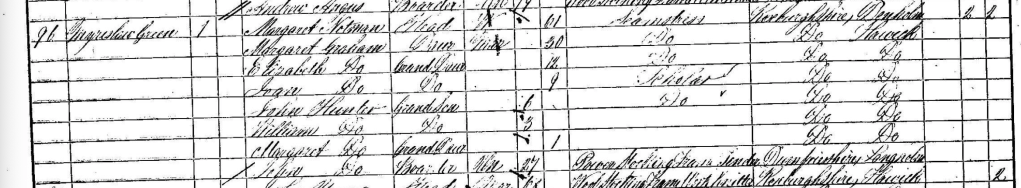 Andrew Angus Boarder 19
96 Green 1 Margaret Notman Head W 61 Seamstress Roxburghshire Denholm 2 2
Margaret Graham Daur 30 Do Do Hawick
Elizabeth Do Grand Daur 12 Do Do Do
Jean Do Do 9 Scholar Do Do
John Hunter Grand Son 6 Do Do Do
William Do Do 3 Do Do
Margaret Do Grand Daur 1 Do Do
John Do Boarder 27 Stocking Frame Dumfriesshire Langholm
Head Roxburghshire Hawick 2